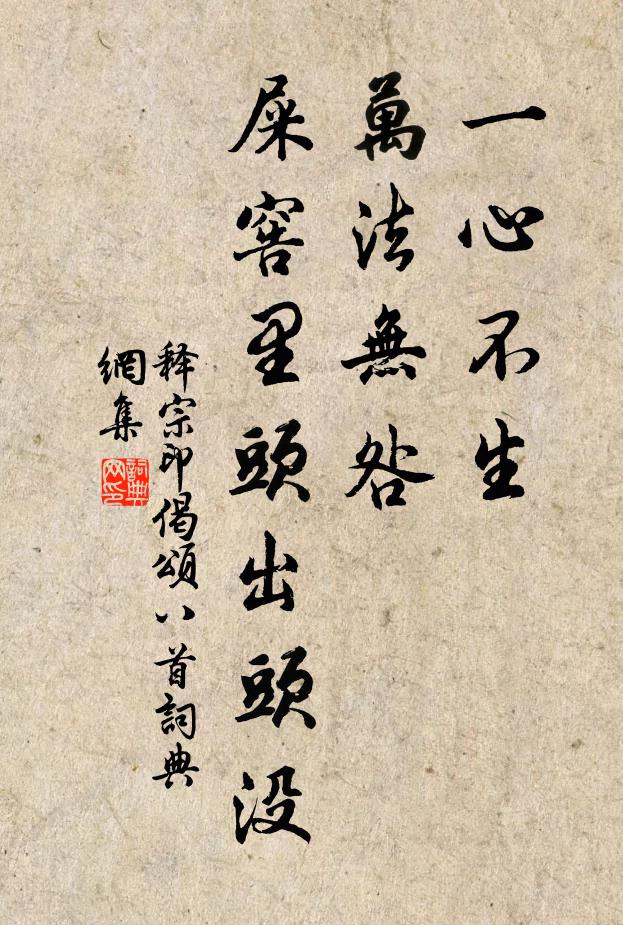 一心不生
萬法無咎
屎窖里頭出頭没
释宗印偈頌八首詞典
網集
詞典
网印